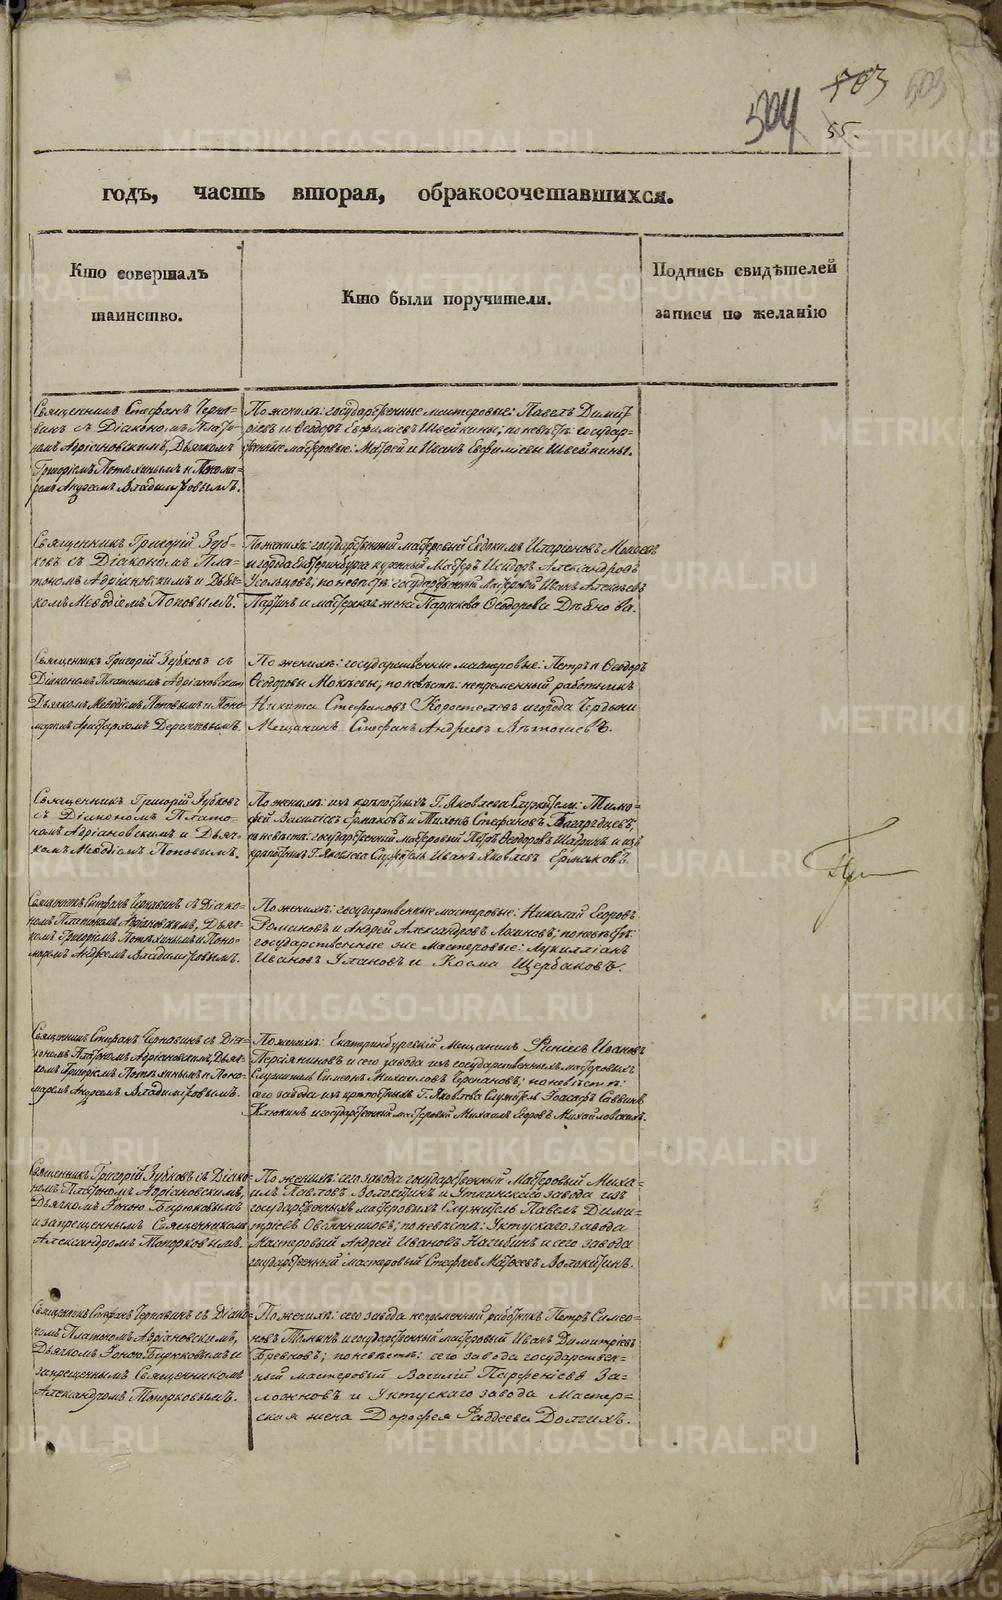 504 503 503
55.
годъ, часть вторая, обракосочетавшихся.
Кто совершалъ
таинство.
Кто были поручители.
Подпись свидѣтелей
записи по желанію
Священникъ Стефанъ Черна-
винъ съ Діакономъ Плато-
номъ Адріановскимъ, Дьячкомъ
Григоріемъ Потѣхинымъ и Поно-
маремъ Андреемъ Владимировымъ.
По женихѣ: государственные мастеровые: Павелъ Димит-
ріевъ и Ѳеодоръ Евфиміевъ Швейкины; по невѣстѣ: государ-
ственные мастеровые: Матвей и Иванъ Евфиміевы Швейкины.
Священникъ Григорій Зуб-
ковъ съ Діакономъ Пла-
тономъ Адріановскимъ и Дьяч-
комъ Меѳодіемъ Поповымъ.
По женихѣ: государственный мастеровый Евдокимъ Иларіоновъ Мокеевъ
и города Екатеринбурга Мастеръ Исидоръ Александровъ
по невѣстѣ: государственный мастеровый Иванъ Алексѣевъ
и мастерская жена Параскева Ѳеодорова
Священникъ Григорій Зубковъ съ
Діакономъ Платономъ Адріановскимъ
Дьячкомъ Меѳодіемъ Поповымъ и Поно-
маремъ Аристархомъ
По женихѣ: государственные мастеровые: Петръ и Ѳеодоръ
Ѳеодоровы Мокѣевы; по невѣстѣ: непременный работникъ
Никита Стефановъ Коростелевъ и города Чердыни
Мещанинъ Стефанъ Андреевъ
Священникъ Григорій Зубковъ
съ Діакономъ Плато-
номъ Адріановскимъ и Дьяч-
комъ Меѳодіемъ Поповымъ.
По женихѣ: изъ крѣпостныхъ Г. Яковлева Служители: Тимо-
фей Василіевъ Ермаковъ и Тихонъ Стефановъ
по невѣстѣ: государственный Мастеровый Петръ Ѳеодоровъ и изъ
крѣпостныхъ Г. Яковлева Служитель Иванъ Яковлевъ Ермаковъ.
Священникъ Стефанъ Чернавинъ съ Діако-
номъ Платономъ Адріановскимъ, Дьяч-
комъ Григоріемъ Потѣхинымъ и Поно-
маремъ Андреемъ Владимировымъ.
По женихѣ: государственные мастеровые: Николай Егоровъ
Романовъ и Андрей Александровъ по невѣстѣ:
государственные же мастеровые: Лукилліанъ
Ивановъ Улановъ и Косма Щербаковъ.
Священникъ Стефанъ Чернавинъ съ Діа-
кономъ Платономъ Адріановскимъ, Дьяч-
комъ Григоріемъ Потѣхинымъ и Поно-
маремъ Андреемъ Владимировымъ.
По женихѣ: Екатеринбургскій Мещанинъ Ивановъ
Персіяниновъ и сего завода изъ государственныхъ мастеровыхъ
Служитель Симеонъ Михаиловъ по невѣстѣ:
сего завода изъ крѣпостныхъ Г. Яковлева Служитель Іоасафъ Саввинъ
Клюкинъ и государственный мастеровый Михаилъ Егоровъ Михайловскихъ.
Священникъ Григорій Зубковъ съ Діако-
номъ Платономъ Адріановскимъ,
Дьячкомъ Іоною Бирюковымъ
и запрещеннымъ Священникомъ
Александромъ Топорковымъ.
По женихѣ: сего завода государственный Мастеровый Миха-
илъ Павловъ Волокитинъ и Уткинскаго завода изъ
государственныхъ мастеровыхъ Служитель Павелъ Дими-
тріевъ Овчинниковъ; по невѣстѣ: Уктускаго завода
Мастеровый Андрей Ивановъ Нагибинъ и сего завода
государственный мастеровый Стефанъ Матвеевъ Волокитинъ.
Священникъ Стефанъ Чернавинъ съ Діако-
номъ Платономъ Адріановскимъ,
Дьячкомъ Іоною Бирюковымъ и
запрещеннымъ Священникомъ
Александромъ Топорковымъ.
По женихѣ: сего завода непременный работникъ Петръ Симео-
новъ и государственный мастеровый Иванъ Димитріевъ
Бревновъ; по невѣстѣ: сего завода государствен-
ный мастеровый Василій Парфеніевъ За-
ложновъ и Уктускаго завода Мастер-
ская жена Дорофея Фаддеева Долгихъ.
METRIKI.GASO-URAL.RU